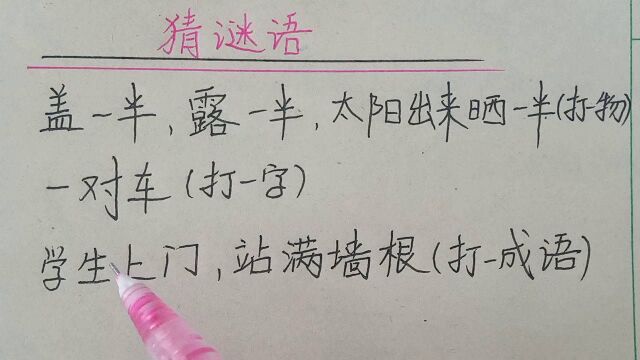 猜谜语
盖一半,露一半,太阳出来晒一半(打一物)
一对车(打一字)
学生上门,站满墙根(打一成语)